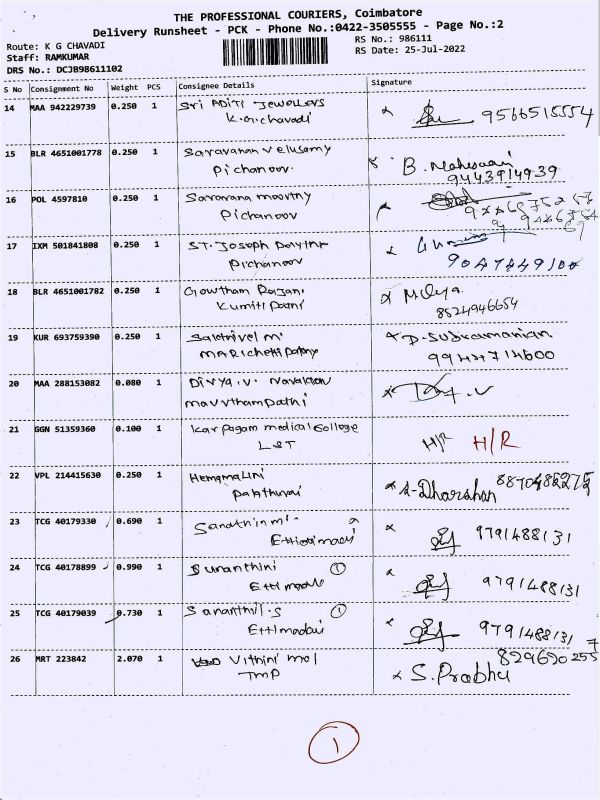 THE PROFESSIONAL COURIERS, Coimbatore
Delivery Runsheet - PCK - Phone No.:0422-3505555 - Page No.:2
Route: K G CHAVADI
RS No.: 986111
Staff: RAMKUMAR
RS Date: 25-Jul-2022
DRS No.: DCJB98611102
S No Consignment No Weight PCS Consignee Details Signature
14 MAA 942229739 0.250 1 Sri Aditi Jewellors
K.G.chavadi 9566515554
15 BLR 4651001778 0.250 1 Saravanan Velusamy B. Maheswari
Pichanoor 9443914939
16 POL 4597810 0.250 1 Saravana moorthy
Pichanoor
17 IXM 501841808 0.250 1 ST. Joseph
Pichanoor
18 BLR 4651001782 0.250 1 Gowtham Rajan
Kumitipathi 8524946654
19 KUR 693759390 0.250 1 Sakthivel m P. Subramanian
9944714600
20 MAA 288153082 0.080 1 Divya.V.
mavuthampathi
21 GGN 51359360 0.100 1 Karpagam medical College H/R H/R
22 VPL 214415630 0.250 1 Hemamalini A. Dharshan 8870482275
23 TCG 40179330 0.690 1 9791488131
24 TCG 40178899 0.990 1 ① 9791488131
25 TCG 40179039 0.730 1 ① 9791488131
Ettimadai
26 MRT 223842 2.070 1 Vithini mol S. Prabhu
TMP
1